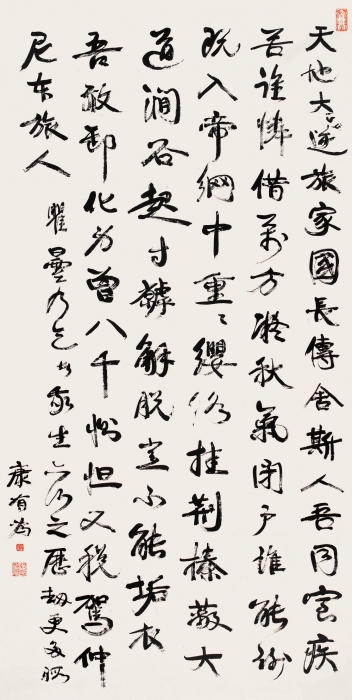 天地大逆旅家國長傳舍斯人吾同室疾
苦誰憐借萬方凝秋氣閉戶誰能謝
既入帝網中重〻纓絡挂荊榛蔽大
道澗谷起寸罅解脫豈不能垢衣
吾敢卸化身曾八千惻怛又稅駕仲
尼本旅人瞿曇乃乞者衆生之歷劫更多暇
康有為